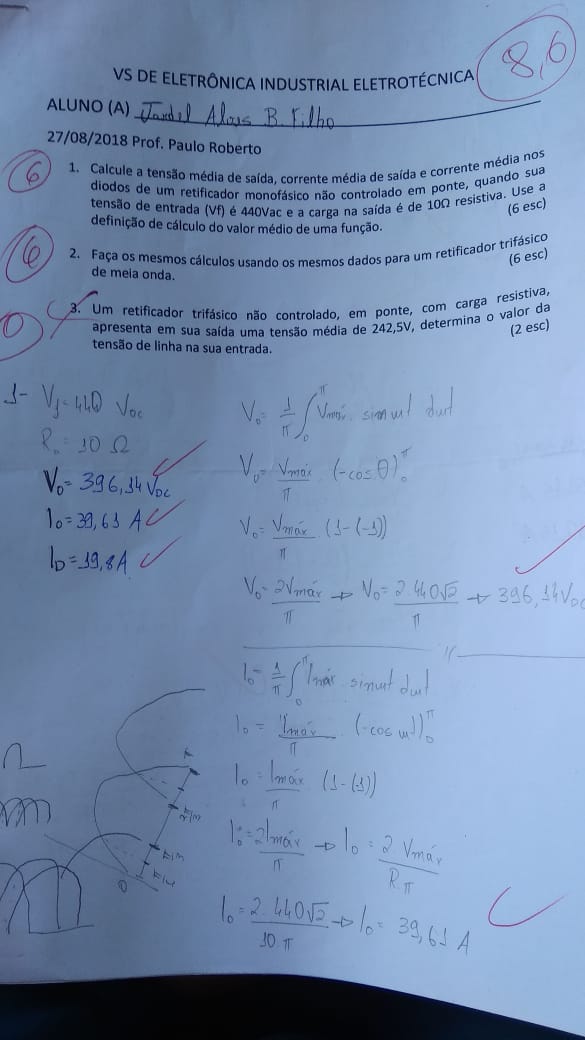 8,6
VS DE ELETRÔNICA INDUSTRIAL ELETROTÉCNICA
ALUNO (A) B. Filho
27/08/2018 Prof. Paulo Roberto
6
1. Calcule a tensão média de saída, corrente média de saída e corrente média nos
diodos de um retificador monofásico não controlado em ponte, quando sua
tensão de entrada (Vf) é 440Vac e a carga na saída é de 10Ω resistiva. Use a
definição de cálculo do valor médio de uma função. (6 esc)
6
2. Faça os mesmos cálculos usando os mesmos dados para um retificador trifásico
de meia onda. (6 esc)
0
3. Um retificador trifásico não controlado, em ponte, com carga resistiva,
apresenta em sua saída uma tensão média de 242,5V, determina o valor da
tensão de linha na sua entrada. (2 esc)
1- Vf = 440
R₀ = 10 Ω
V₀ = 396,14 VDC
I₀ = 39,61 A
ID = 19,8A
V₀ = 1/π ∫₀^π Vmáx. sinwt dwt
V₀ = Vmáx/π (-cos θ)₀^π
V₀ = Vmáx/π (1-(-1))
V₀ = 2Vmáx/π → V₀ = 2.440√2/π → 396,14VDC
I₀ = 1/π ∫₀^π Imáx. sinwt dwt
I₀ = Imáx/π (-cos wt)₀^π
I₀ = Imáx/π (1-(-1))
I₀ = 2Imáx/π → I₀ = 2 Vmáx/R.π
I₀ = 2.440√2/10.π → I₀ = 39,61 A
0